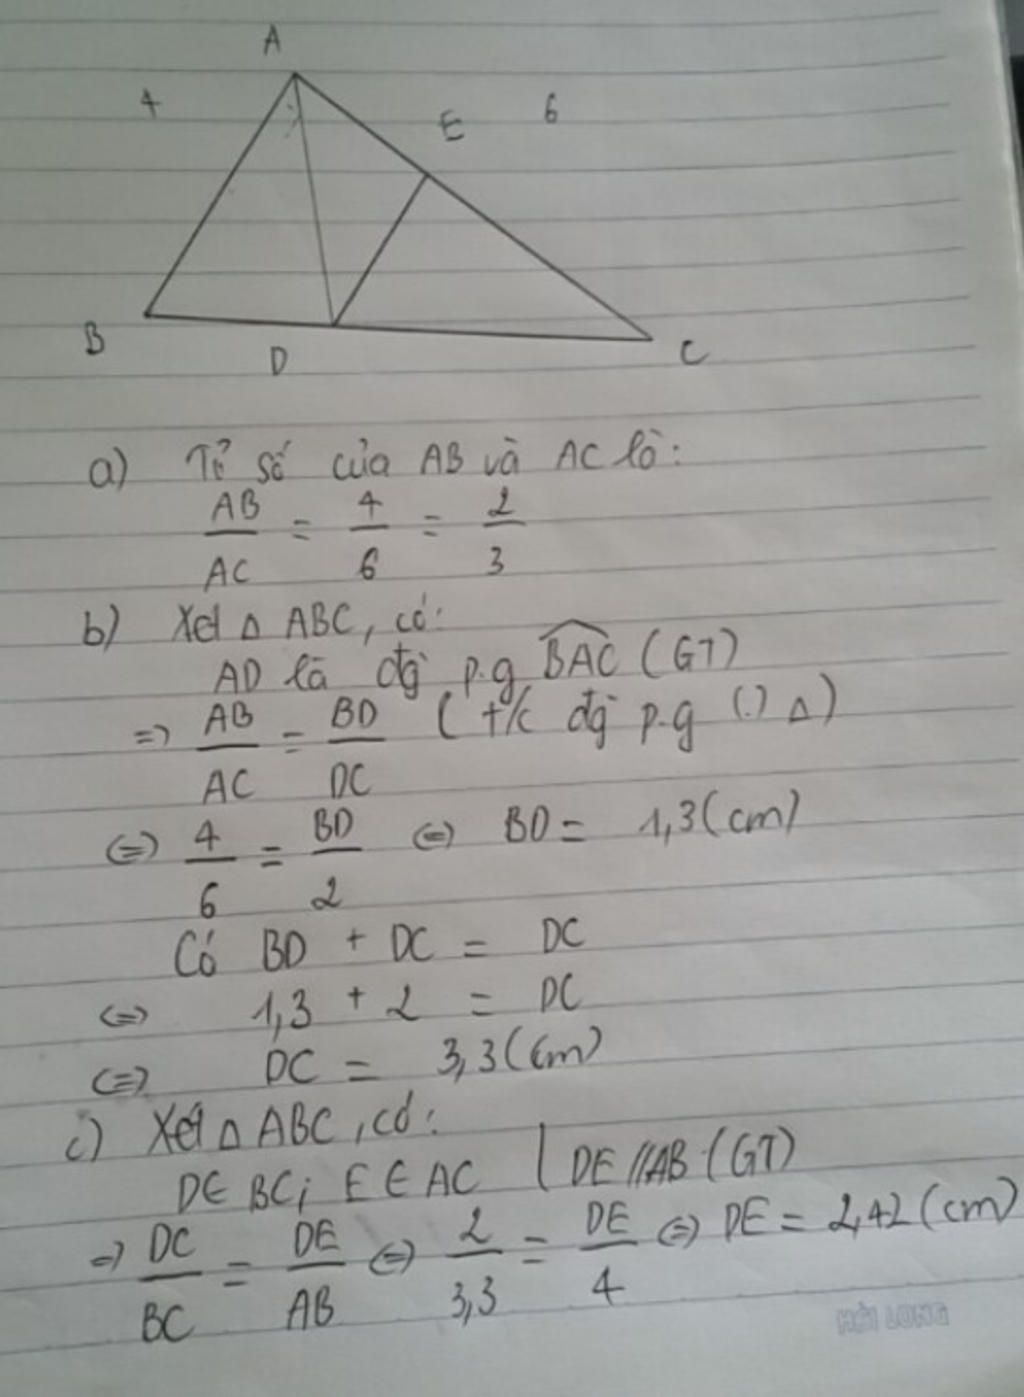 A
4
E
6
B
D
C
a) Tỉ số của AB và AC là:
AB/AC = 4/6 = 2/3
b) Xét Δ ABC, có:
AD là đg p.g BAC (GT)
=> AB/AC = BD/DC (t/c đg p.g (.) Δ)
<=> 4/6 = BD/2 <=> BD = 1,3(cm)
Có BD + DC = DC
<=> 1,3 + 2 = DC
<=> DC = 3,3(cm)
c) Xét Δ ABC, có:
D∈ BC; E ∈ AC | DE//AB (GT)
=> DC/BC = DE/AB <=> 2/3,3 = DE/4 <=> DE = 2,42 (cm)
HẢI LONG